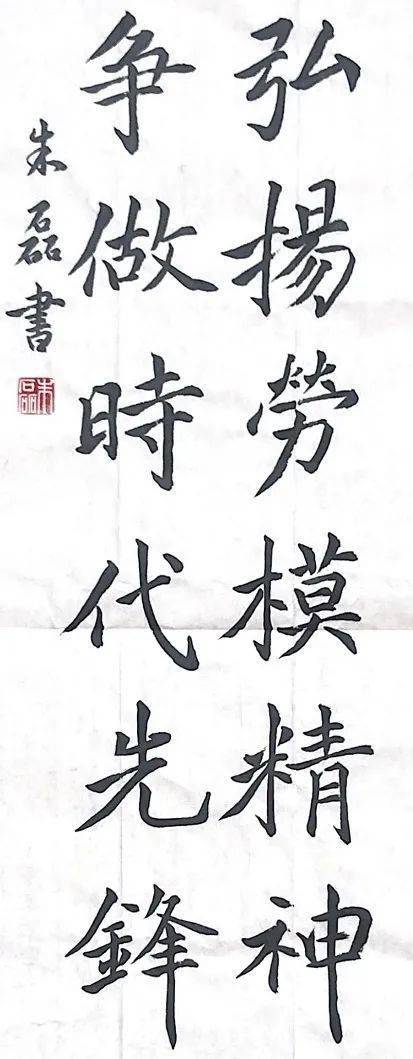 弘揚勞模精神
争做時代先鋒
朱磊書
朱磊